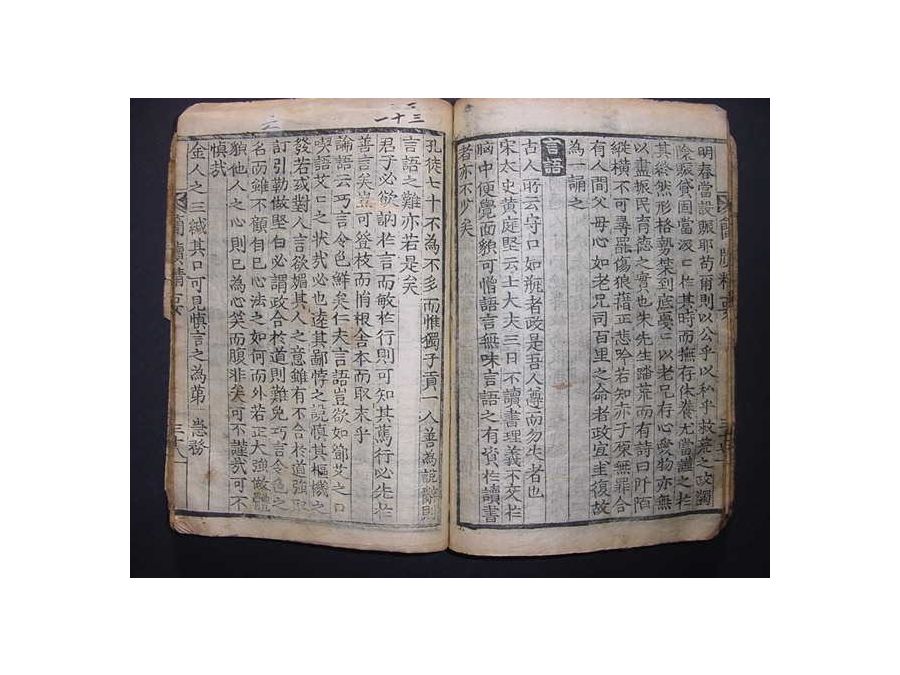 明春當設賑耶苟爾則以公乎以私乎救荒之政蠲
民育德之實也朱先生踏荒而有詩曰阡陌
縱橫不可尋羅傷狼藉正悲吟若知赤子元無罪合
有人間父母心如老兄司百里之命者政宜圭復故
為一誦之
言語
古人所云守口如甁者政是吾人尊而勿失者也
宋太史黃庭堅云士大夫三日不讀書理義不交於
胸中便覺面貌可憎語言無味言語之有資於讀書
者亦不少矣
三十一
孔徒七十不為不多而惟獨子貢一人善為說辭則
言語之難亦若是矣
君子必欲訥於言而敏於行則可知其篤行必先於
善言矣豈可登枝而悄根舍本而取末乎
論語云巧言令色鮮矣仁夫言語豈欲如鄧艾之口
吃語艾口之狀哉心也遠其鄙悖之說慎其樞機之
發若或對人言欲媚其人之意雖有不合於道強取
訂引勒做堅白必謂政合於道則難免巧言令色之
名而雖不顧自己心法之如何而外若正大強做體
貌他人之心則已為心笑而腹非矣可不謹哉可不
慎哉
金人之三緘其口可見慎言之為第一急務
簡牘精要
簡牘精要